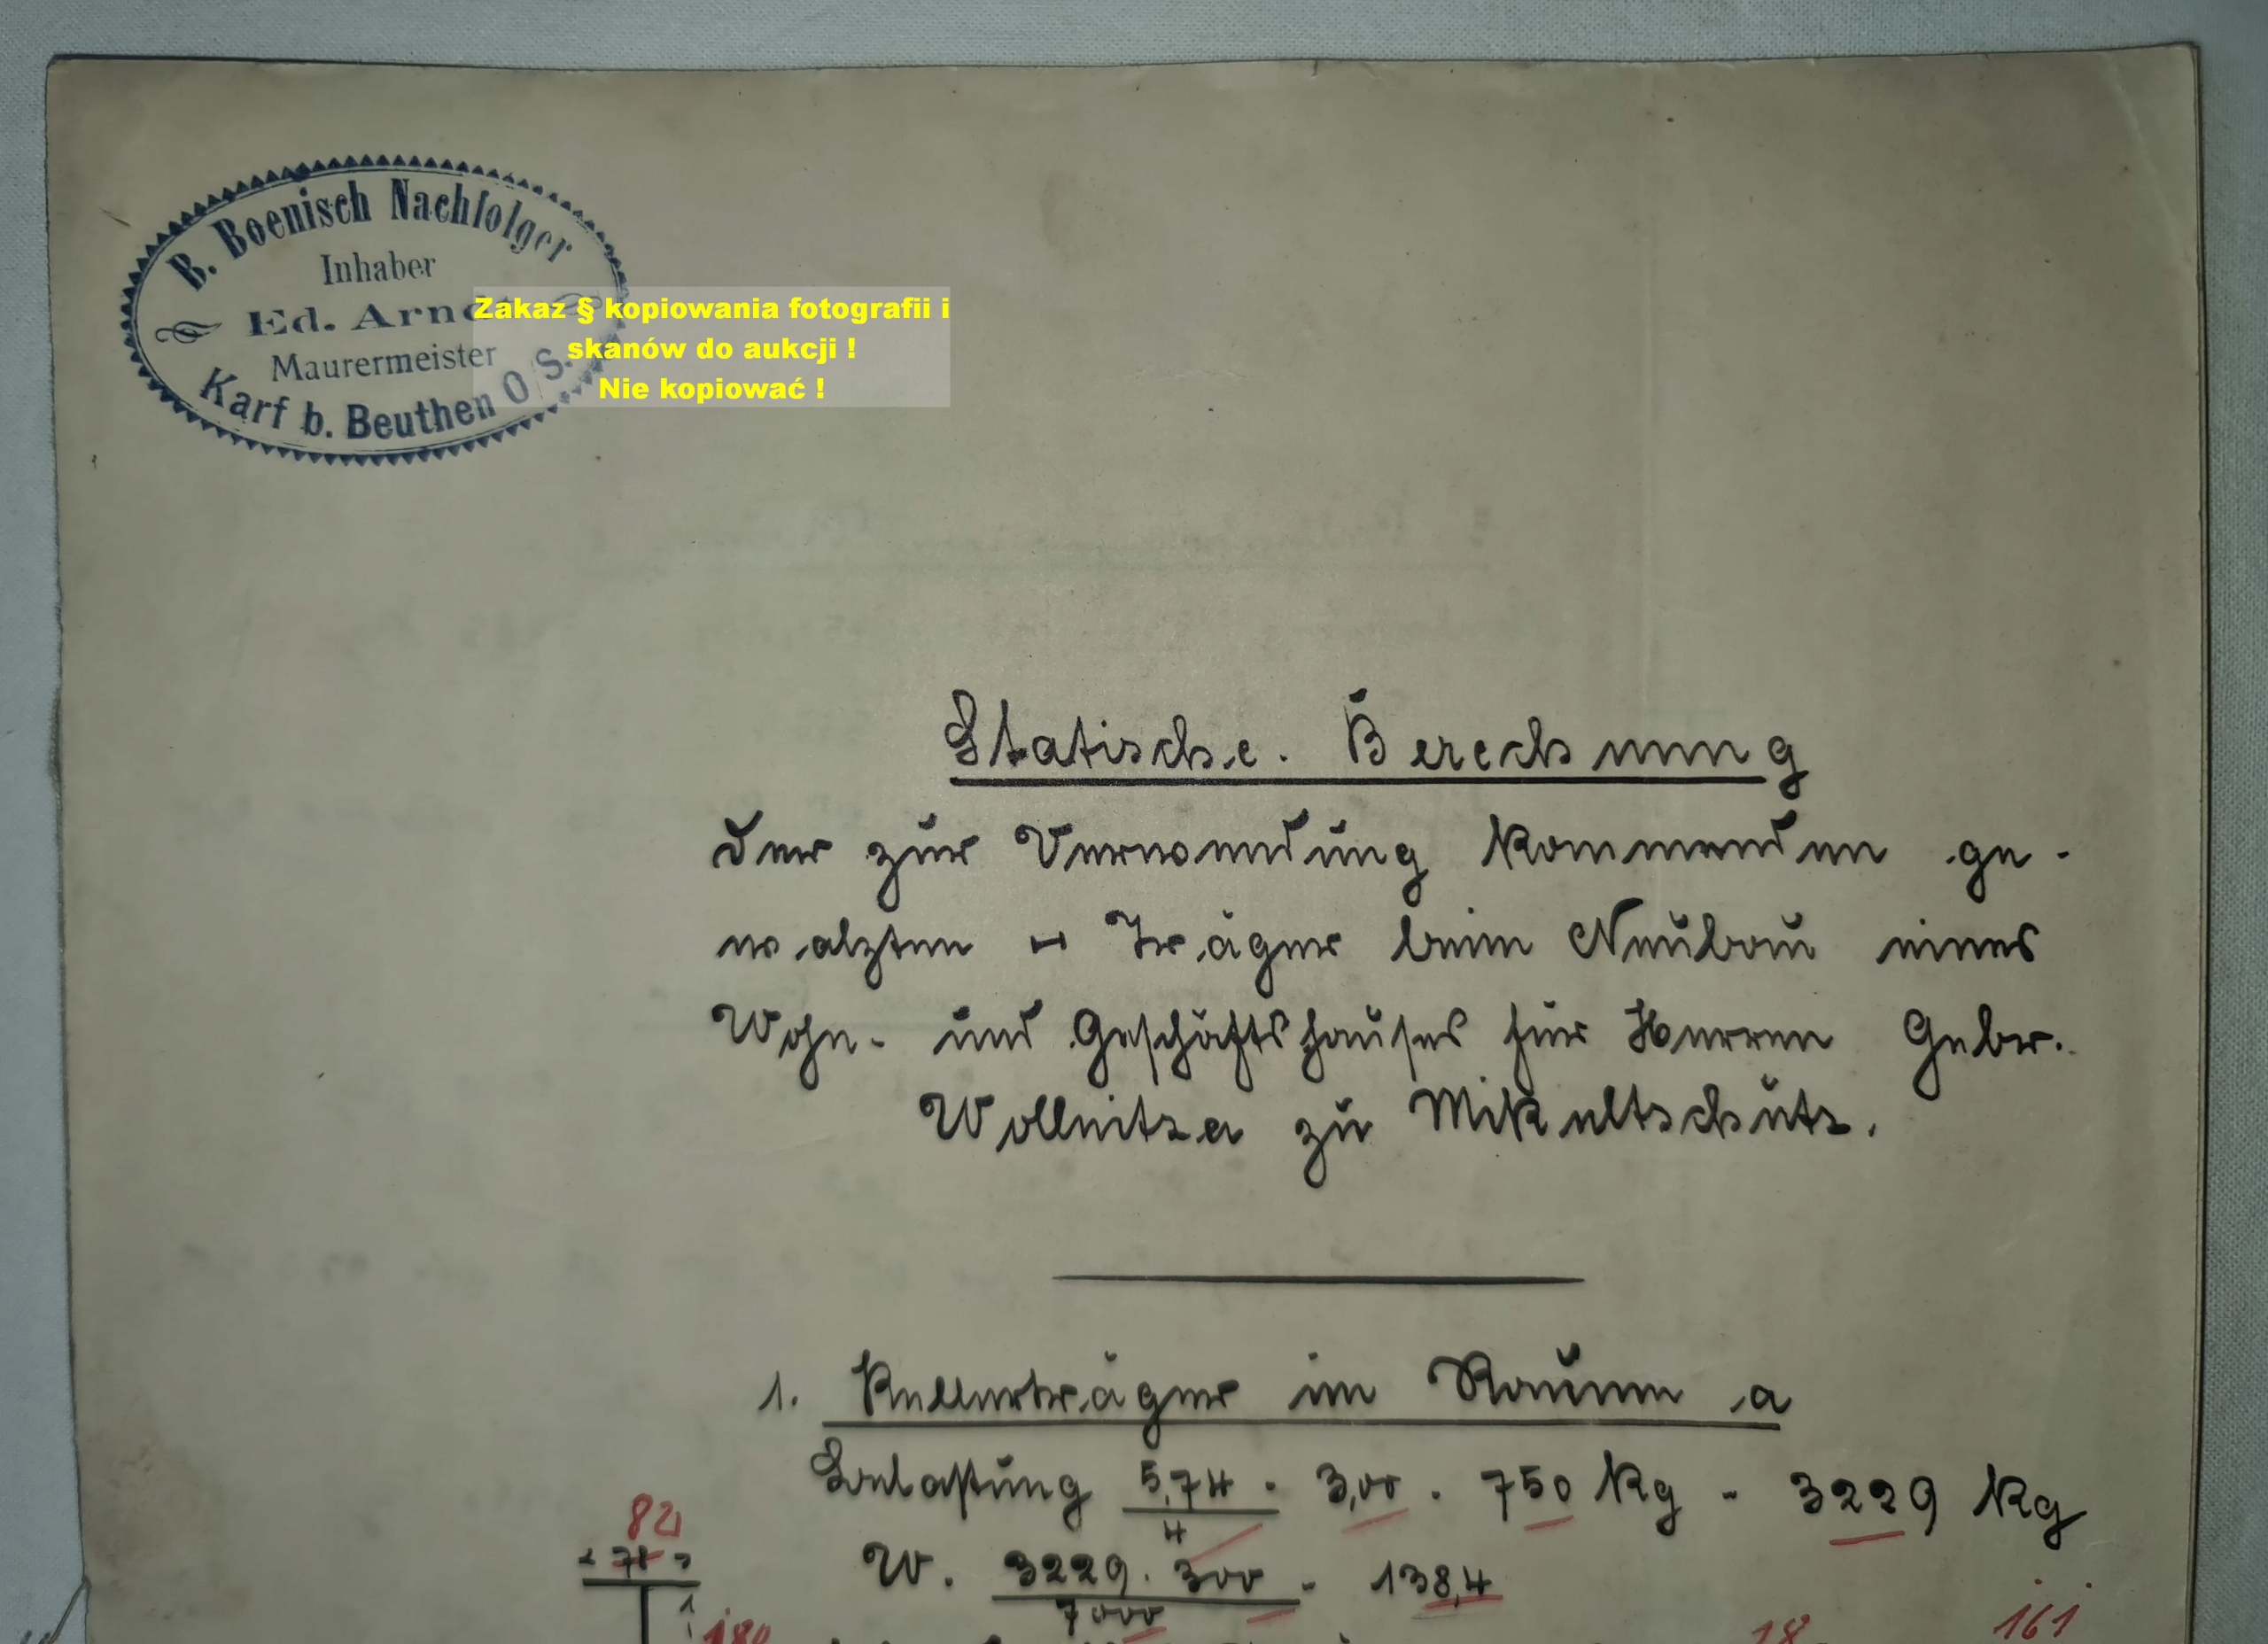 B. Boenisch Nachfolger
Inhaber
Ed. Arndt
Maurermeister
Karf b. Beuthen O/S.
Zakaz § kopiowania fotografii i
skanów do aukcji !
Nie kopiować !
Statische Berechnung
der zur Verwendung kommenden ge-
walzten I Träger beim Neubau eines
Wohn- und Geschäftshauses für Herren Gebr.
Wollnitza zu Mikultschütz.
1. Kellerträger im Raume a
Belastung 5,74 · 3,00 · 750 Kg = 3229 Kg
4
W = 3229 · 300 = 138,4
7000
82
78
180
18
161